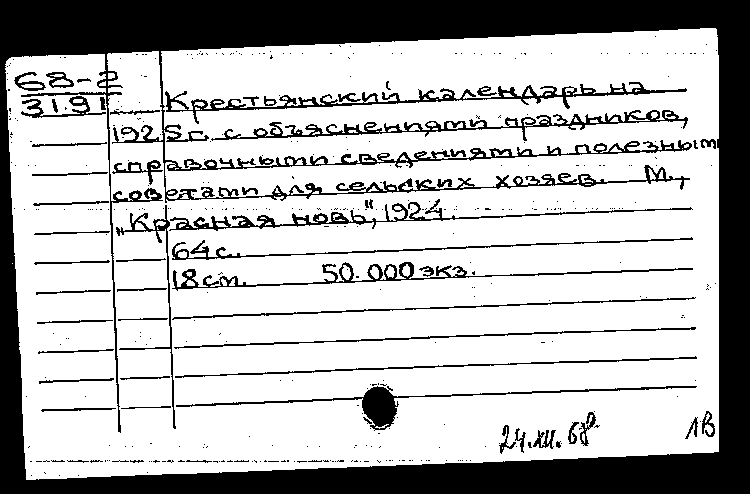 68-2
3191
Крестьянский календарь на
1925г. с объяснениями праздников,
справочными сведениями и полезным
советами для сельских хозяев. М.,
„Красная новь", 1924.
64 с.
18 см. 50.000 экз.
24.XII.68г. 1В